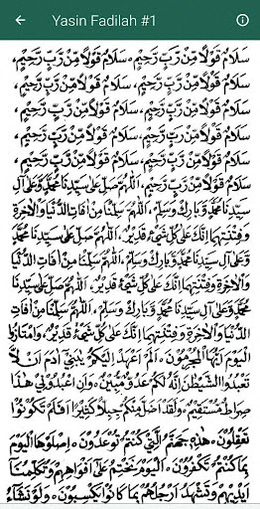 Yasin Fadilah #1
سَلَامٌ قَوْلًا مِّنْ رَّبٍّ رَّحِيْمٍ، سَلَامٌ قَوْلًا مِّنْ رَّبٍّ رَّحِيْمٍ،
سَلَامٌ قَوْلًا مِّنْ رَّبٍّ رَّحِيْمٍ، سَلَامٌ قَوْلًا مِّنْ رَّبٍّ رَّحِيْمٍ،
سَلَامٌ قَوْلًا مِّنْ رَّبٍّ رَّحِيْمٍ، سَلَامٌ قَوْلًا مِّنْ رَّبٍّ رَّحِيْمٍ،
سَلَامٌ قَوْلًا مِّنْ رَّبٍّ رَّحِيْمٍ، سَلَامٌ قَوْلًا مِّنْ رَّبٍّ رَّحِيْمٍ،
سَلَامٌ قَوْلًا مِّنْ رَّبٍّ رَّحِيْمٍ، سَلَامٌ قَوْلًا مِّنْ رَّبٍّ رَّحِيْمٍ،
سَلَامٌ قَوْلًا مِّنْ رَّبٍّ رَّحِيْمٍ، اَللّٰهُمَّ صَلِّ عَلٰى سَيِّدِنَا مُحَمَّدٍ وَعَلٰى اٰلِ
سَيِّدِنَا مُحَمَّدٍ وَبَارِكْ وَسَلِّمْ، اَللّٰهُمَّ سَلِّمْنَا مِنْ اٰفَاتِ الدُّنْيَا وَالْاٰخِرَةِ
وَفِتْنَتِهِمَا اِنَّكَ عَلٰى كُلِّ شَيْءٍ قَدِيْرٌ، اَللّٰهُمَّ صَلِّ عَلٰى سَيِّدِنَا مُحَمَّدٍ
وَعَلٰى اٰلِ سَيِّدِنَا مُحَمَّدٍ وَبَارِكْ وَسَلِّمْ، اَللّٰهُمَّ سَلِّمْنَا مِنْ اٰفَاتِ الدُّنْيَا
وَالْاٰخِرَةِ وَفِتْنَتِهِمَا اِنَّكَ عَلٰى كُلِّ شَيْءٍ قَدِيْرٌ، اَللّٰهُمَّ صَلِّ عَلٰى سَيِّدِنَا
مُحَمَّدٍ وَعَلٰى اٰلِ سَيِّدِنَا مُحَمَّدٍ وَبَارِكْ وَسَلِّمْ، اَللّٰهُمَّ سَلِّمْنَا مِنْ اٰفَاتِ
الدُّنْيَا وَالْاٰخِرَةِ وَفِتْنَتِهِمَا اِنَّكَ عَلٰى كُلِّ شَيْءٍ قَدِيْرٌ، وَامْتَازُوا
الْيَوْمَ اَيُّهَا الْمُجْرِمُوْنَ۝ اَلَمْ اَعْهَدْ اِلَيْكُمْ يٰبَنِيْ اٰدَمَ اَنْ لَّا
تَعْبُدُوا الشَّيْطٰنَ اِنَّهٗ لَكُمْ عَدُوٌّ مُّبِيْنٌ۝ وَاَنِ اعْبُدُوْنِيْ هٰذَا
صِرَاطٌ مُّسْتَقِيْمٌ۝ وَلَقَدْ اَضَلَّ مِنْكُمْ جِبِلًّا كَثِيْرًا اَفَلَمْ تَكُوْنُوْا
تَعْقِلُوْنَ۝ هٰذِهٖ جَهَنَّمُ الَّتِيْ كُنْتُمْ تُوْعَدُوْنَ۝ اِصْلَوْهَا الْيَوْمَ
بِمَا كُنْتُمْ تَكْفُرُوْنَ۝ اَلْيَوْمَ نَخْتِمُ عَلٰى اَفْوَاهِهِمْ وَتُكَلِّمُنَا
اَيْدِيْهِمْ وَتَشْهَدُ اَرْجُلُهُمْ بِمَا كَانُوْا يَكْسِبُوْنَ۝ وَلَوْ نَشَاءُ